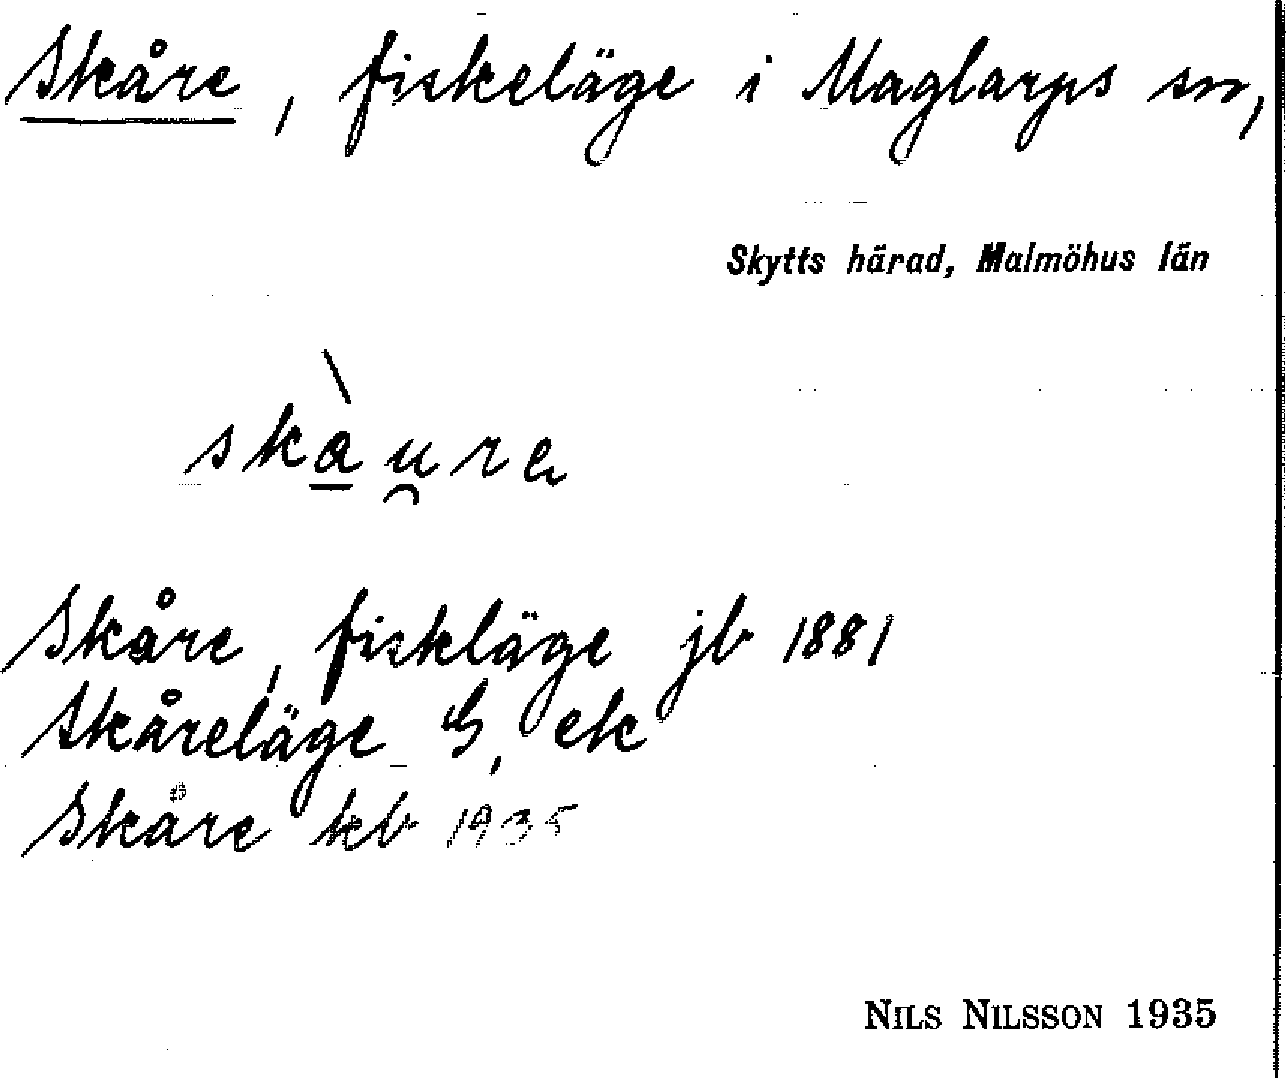 Skåre, fiskeläge i Maglarps sn,
Skytts härad, Malmöhus län
skàu̯re
Skåre, fiskläge jb 1881
Skåreläge G, ek
Skåre kb 1935
NILS NILSSON 1935